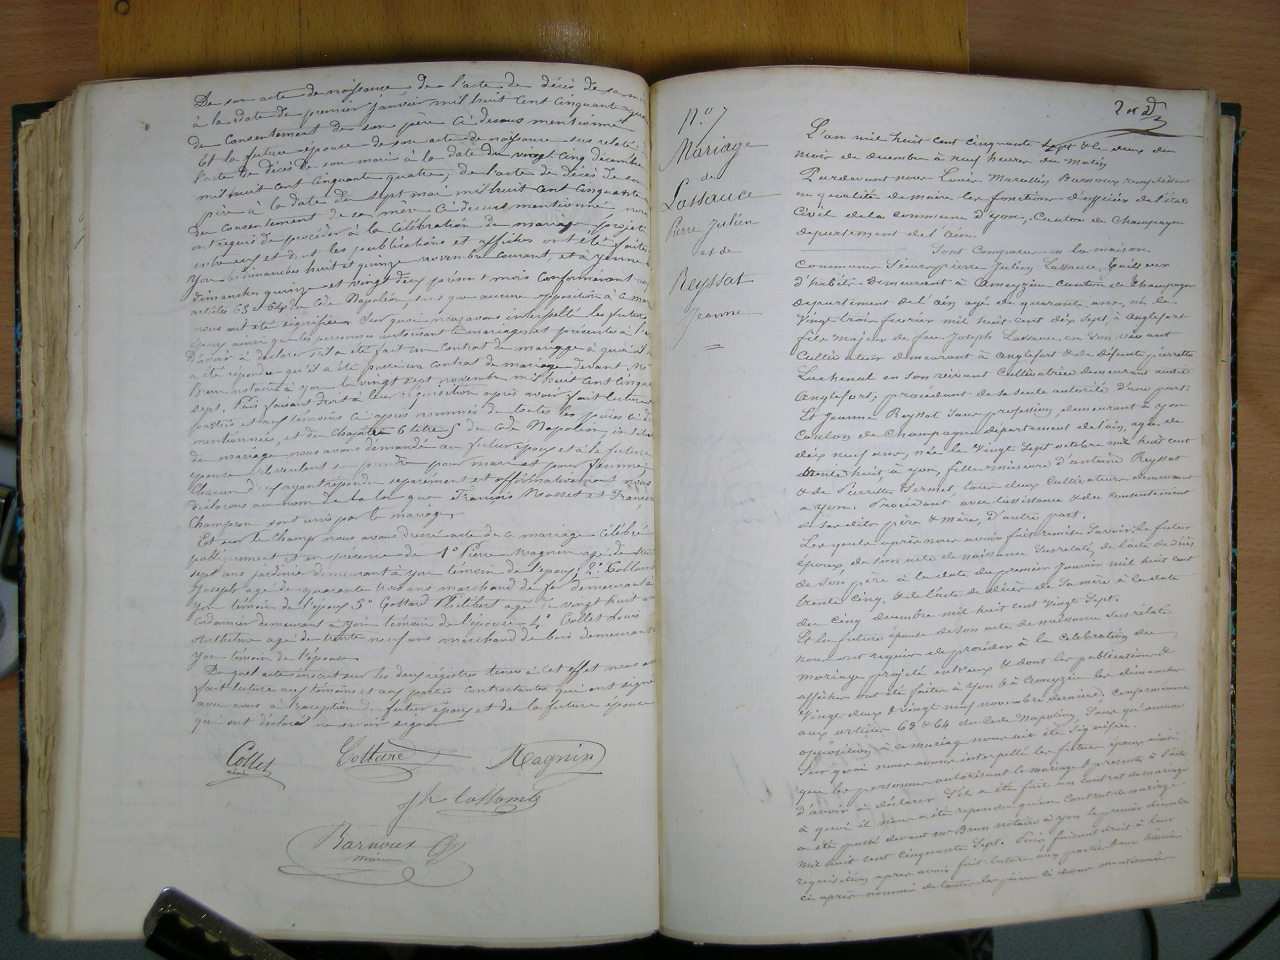 De son acte de naissance de l'acte de décès de sa
à la date du premier janvier mil huit cent cinquante
du Consentement de son père ci dessus mentionné
Et la future épouse de son acte de naissance sus relaté
l'acte de décès de son mari à la date du vingt cinq décembre
mil huit cent cinquante quatre, de l'acte de décès de son
père à la date du sept mai mil huit cent cinquante
Du Consentement de sa mère ci dessus mentionnée nous
ont requis de procéder à la célébration du mariage projeté
entre eux et dont les publications et affiches ont été faites
Yon les dimanches huit et quinze novembre courant et à
dimanches quinze et vingt deux présent mois conformément aux
articles 63 et 64 du code Napoléon sans que aucune opposition à ce mariage
nous ait été signifiée. Sur quoi nous avons interpellé les futurs
époux ainsi que les personnes autorisant le mariage et présentes à l'acte
D'avoir à déclarer s'il a été fait un contrat de mariage à quoi il
a été répondu qu'il a été passé un contrat de mariage devant Me
Brun notaire à Yon le vingt sept novembre mil huit cent cinquante
sept. Puis faisant droit à leur réquisition après avoir fait lecture aux
parties et aux témoins ci après nommés de toutes les pièces ci dessus
mentionnées, et du chapitre 6 titre 5 du code Napoléon intitulé
du mariage nous avons demandé au futur époux et à la future
épouse s'ils veulent se prendre pour mari et pour femme,
chacun d'eux ayant répondu séparément et affirmativement nous
déclarons au nom de la loi que François Mosset et
Champion sont unis par le mariage.
Et sur le champ nous avons dressé acte de ce mariage célébré
publiquement et en présence de 1° Père Magnin agé de
sept ans jardinier demeurant à Yon témoin de l'époux, 2°
Joseph agé de quarante trois ans marchand de fer demeurant à
Yon témoin de l'époux 3° Gottard Philibert agé de vingt huit ans
cordonnier demeurant à Yon témoin de l'épouse 4° Collet Louis
Anthelme agé de trente neuf ans marchand de bois demeurant
Yon témoin de l'épouse
Duquel acte inscrit sur les deux registres tenus à cet effet nous avons
fait lecture aux témoins et aux parties contractantes qui ont signé
avec nous à l'exception du futur époux et de la future épouse
qui ont déclaré ne savoir signer
Collet Magnin
Barnoux
maire
N° 7
Mariage
de
Lassauce
Pierre Julien
et de
Reyssat
Jeanne
L'an mil huit cent cinquante sept & le deux du
mois de décembre à neuf heures du matin
Pardevant nous Louis Marcellin Barnoux remplissant
en qualité de maire les fonctions d'officier de l'état
Civil de la commune d'Yon, Canton de Champagne
département de l'ain.
Sont Comparus en la maison
Commune Sieur pierre Julien Lassauce,
d'habits demeurant à Ameyzieu canton de Champagne
département de l'ain, agé de quarante ans, né le
Vingt trois fevrier mil huit cent dix sept, à Anglefort
fils majeur de feu Joseph Lassauce, en son vivant
Cultivateur demeurant à Anglefort & de défunte pierrette
en son vivant Cultivatrice demeurant audit
Anglefort, procédant de sa seule autorité d'une part.
Et Jeanne Reyssat Sans profession, demeurant à yon
Canton de Champagne département de l'ain, agée de
dix neuf ans, née le Vingt Sept octobre mil huit cent
trente huit, à yon, fille mineure d'antoine Reyssat
& de Pierrette tous deux Cultivateurs demeurant
à yon. Procédant avec l'assistance & du consentement
de ses dits père & mère, d'autre part.
Lesquels après nous avoir fait remise Savoir: le futur
époux de son acte de naissance Susrelaté, de l'acte de décès
de Son père à la date du premier Janvier mil huit cent
trente cinq, & de l'acte de décès de Sa mère à la date
du cinq decembre mil huit cent vingt Sept.
Et la future épouse de Son acte de naissance Sus relaté
nous ont requis de procéder à la celebration du
mariage projeté entr'eux & dont les publications &
affiches ont été faites à Yon & à Ameyzieu les dimanches
Vingt deux & vingt neuf novembre dernier, conformément
aux articles 63 & 64 du Code Napoléon, Sans qu'aucune
opposition à ce mariage nous ait été Signifiée.
Sur quoi nous avons interpellé les futurs époux ainsi
que les personnes autorisant le mariage & presentes à l'acte
d'avoir à déclarer S'il a été fait un contrat de mariage
à quoi il nous a été répondu qu'un Contrat de mariage
a été passé devant Me Brun notaire à Yon le premier décembre
mil huit cent cinquante Sept. Puis faisant droit à leur
requisition après avoir fait lecture aux parties & aux témoins
ci après nommés de toutes les pièces ci dessus mentionnées